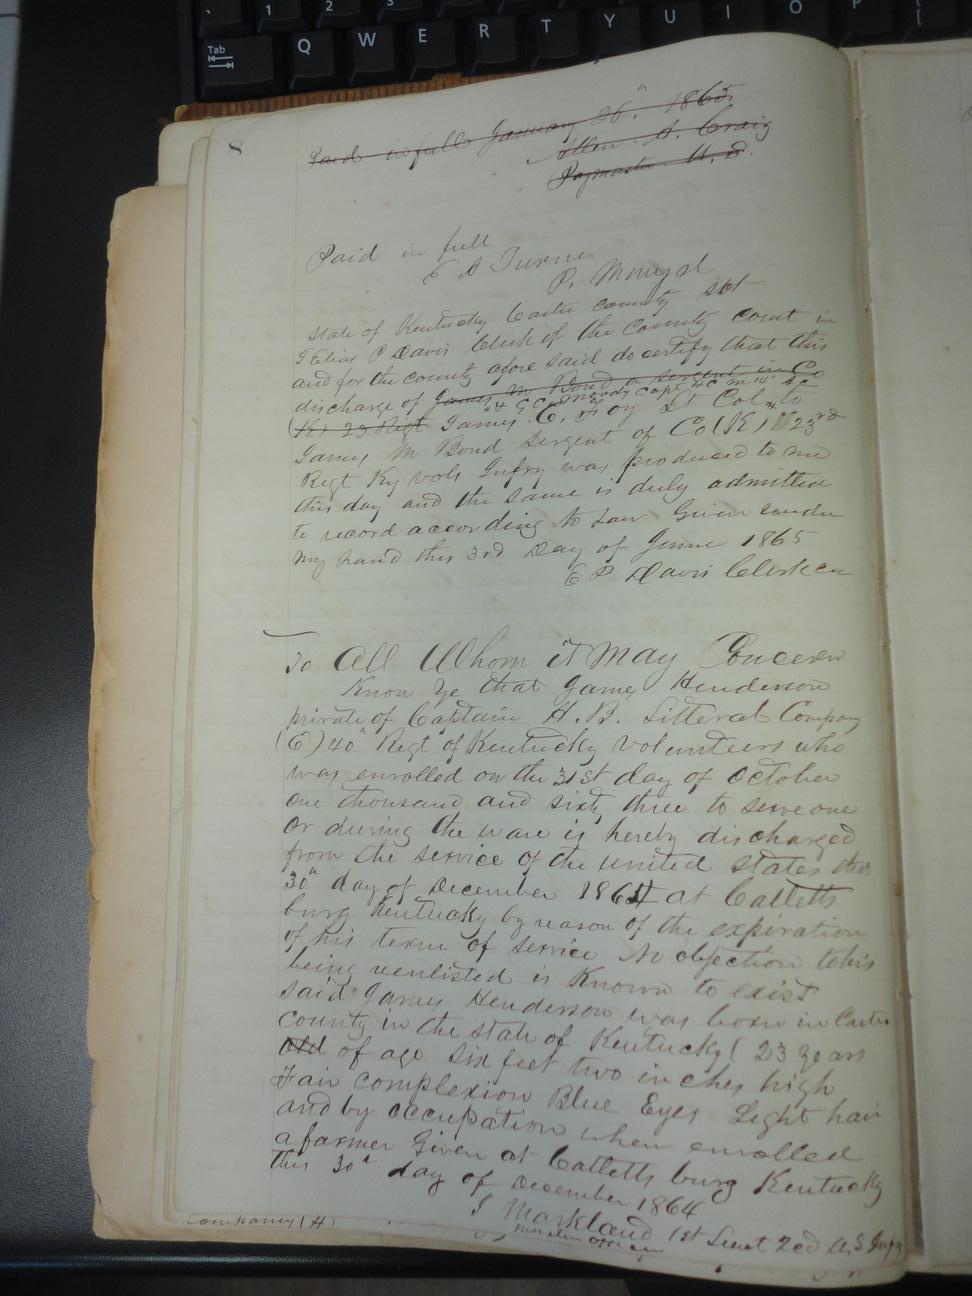 8
Paid in full January 26" 1863
A. Craig
Paymaster U. S.
Paid in full
E A Turner
P.
State of Kentucky Carter county Sct
I Elias P Davis Clerk of the County Court in
and for the county afore said do certify that this
discharge of James M Bond a Sergent in Co
(K) 23 Regt James E. Foy Lt Col to
James M Bond Sergent of Co (K) 23rd
Regt Ky vols Infry was produced to me
this day and the same is duly admitted
to record according to Law Given under
my hand this 3rd Day of June 1865
E P Davis Clerk
To All Whom it May Concern
Know Ye that James Henderson
private of Captain H. B. Litteral Company
(E) 40" Regt of Kentucky Volunteers who
was enrolled on the 31st day of October
one thousand and sixty three to serve one
or during the ware is hereby discharged
from the service of the united states this
30" day of December 1864 at Catletts
burg Kentucky by reason of the expiration
of his term of service No objection to his
being renlisted is Known to exist
Said James Henderson was born in Carter
County in the state of Kentucky ( 23 years
old of age six feet two inches high
Fair complexion Blue Eyes Light hair
and by occupation when enrolled
a farmer Given at Catletts burg Kentucky
this 30" day of December 1864
J Markland 1st Lieut 2ed U.S Infy
Company (H)